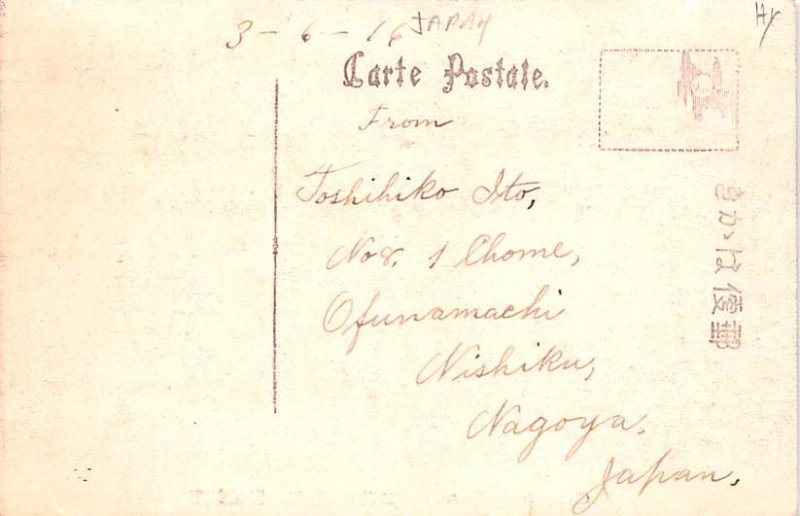 3-6-16 JAPAN
Hy
Carte Postale.
From
Toshihiko Ito,
No 8. 1 Chome,
Ofunamachi
Nishiku,
Nagoya.
Japan.
きかは便郵